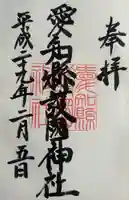 奉拝
愛知縣護國神社
平成二十九年二月五日